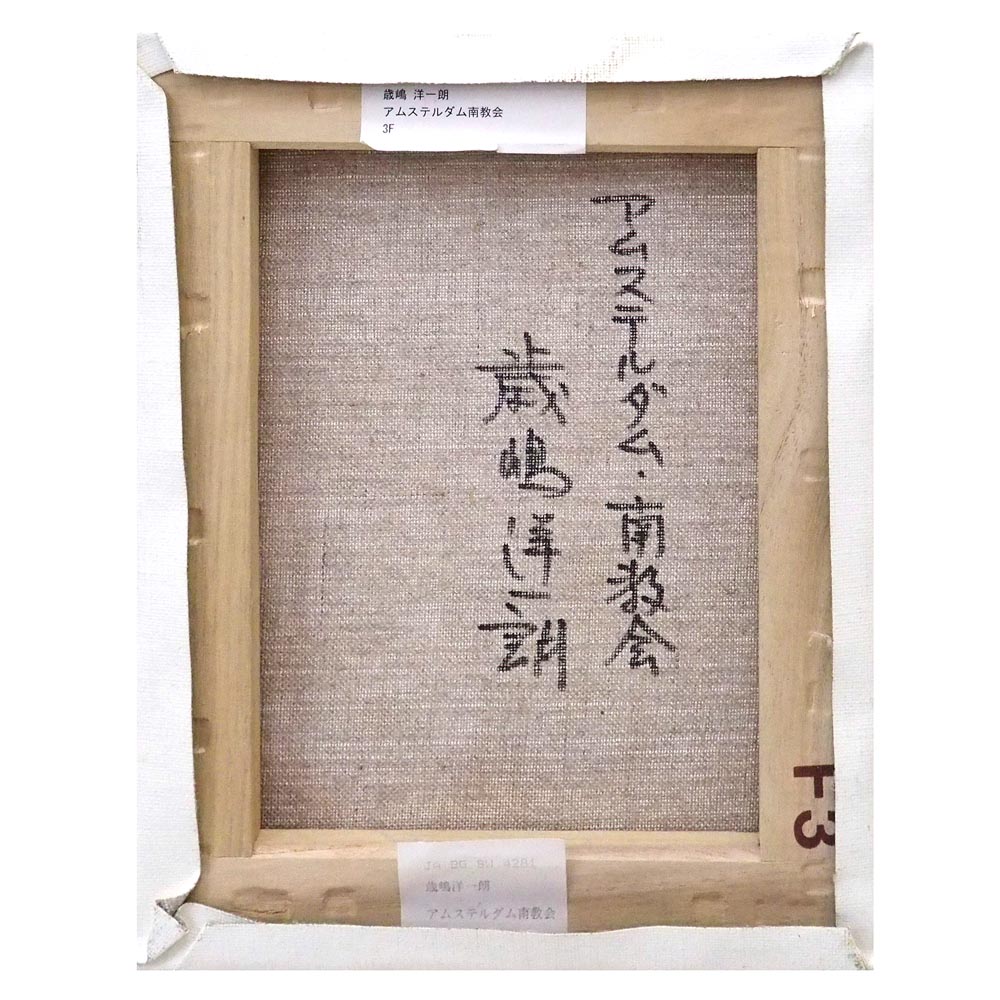 歳嶋 洋一朗
アムステルダム南教会
3F
アムステルダム・南教会
歳嶋洋一朗
F3
歳嶋洋一朗
アムステルダム南教会